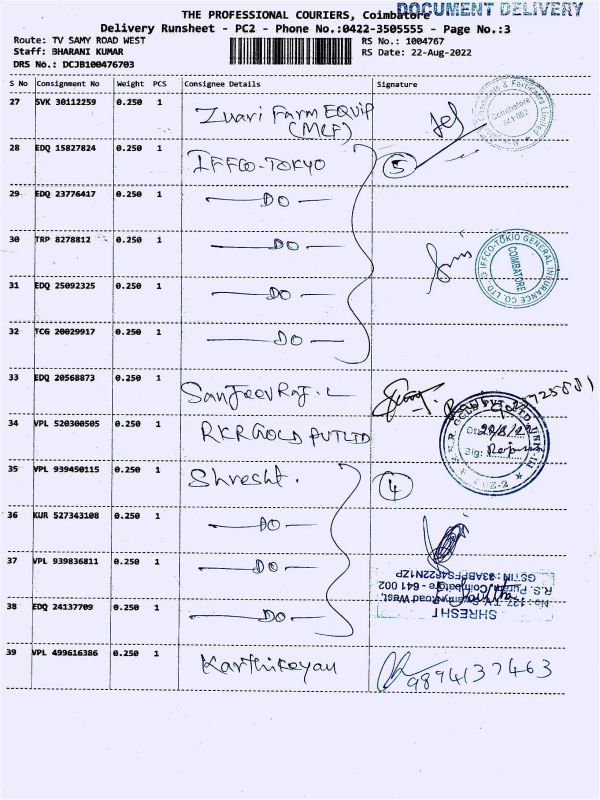 THE PROFESSIONAL COURIERS, Coimbatore
DOCUMENT DELIVERY
Delivery Runsheet - PC2 - Phone No.:0422-3505555 - Page No.:3
Route: TV SAMY ROAD WEST
RS No.: 1004767
Staff: BHARANI KUMAR
RS Date: 22-Aug-2022
DRS No.: DCJB100476703
S No Consignment No Weight PCS Consignee Details Signature
27 SVK 30112259 0.250 1 Zuari Farm EQUIP
(MCF)
Coimbatore
641 002
28 EDQ 15827824 0.250 1 IFFCO-TOKYO 5
29 EDQ 23776417 0.250 1 — DO —
30 TRP 8278812 0.250 1 — DO —
IFFCO-TOKIO GENERAL INSURANCE CO. LTD.
COIMBATORE
31 EDQ 25092325 0.250 1 — DO —
32 TCG 20029917 0.250 1 — DO —
33 EDQ 20568873 0.250 1 Sanjeev Raj. L
34 VPL 520300505 0.250 1 RKR GOLD PVT LTD
Dt: 22/8/22
Sig:
35 VPL 939450115 0.250 1 Shresht. 4
36 KUR 527343108 0.250 1 — DO —
37 VPL 939836811 0.250 1 — DO —
38 EDQ 24137709 0.250 1 — DO —
SHRESHT
No: 127, T.V. Samy Road West,
R.S. Puram, Coimbatore - 641 002
GSTIN : 33ABFFS4622N1ZP
39 VPL 499616386 0.250 1 Karthikeyan 9894137463